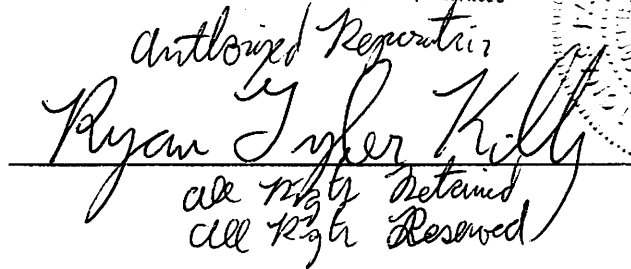 Authorized Representative
Ryan Tyler Kelly
All Rights Retained
All Rights Reserved